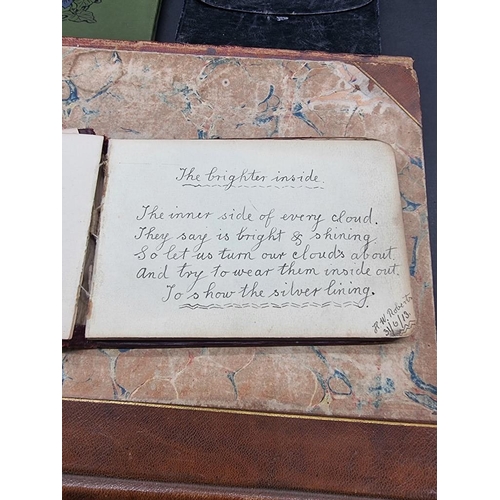 The brighter inside.
The inner side of every cloud.
They say is bright & shining
So let us turn our clouds about.
And try to wear them inside out.
To show the silver lining.
H.W. Roberts
31/6/13.